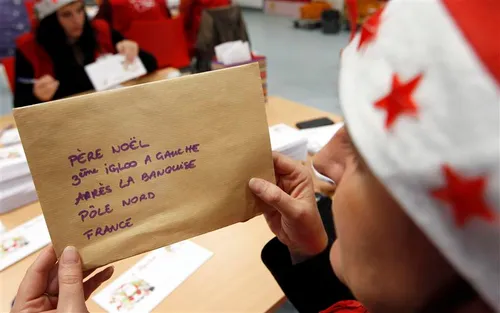 PÈRE NOËL
3ème IGLOO A GAUCHE
APRÈS LA BANQUISE
PÔLE NORD
FRANCE